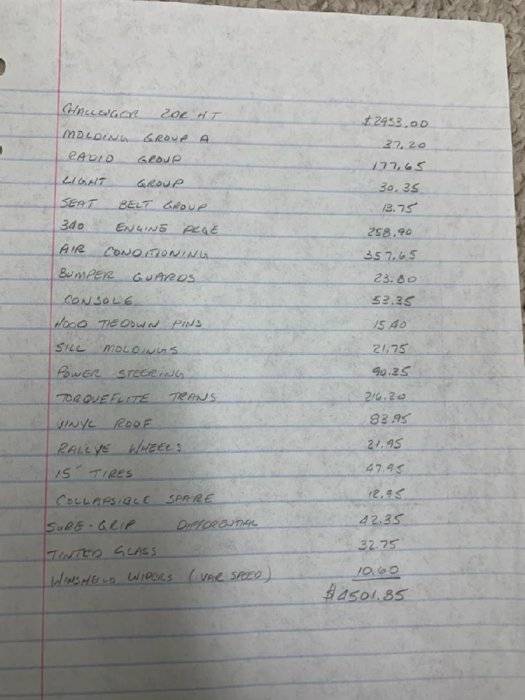 CHALLENGER 2DR HT $2953.00
MOLDING GROUP A 37.20
RADIO GROUP 177.65
LIGHT GROUP 30.35
SEAT BELT GROUP 13.75
340 ENGINE PKGE 258.90
AIR CONDITIONING 357.65
BUMPER GUARDS 23.80
CONSOLE 53.35
HOOD TIEDOWN PINS 15.40
SILL MOLDINGS 21.75
POWER STEERING 90.35
TORQUEFLITE TRANS 216.20
VINYL ROOF 83.95
RALLYE WHEELS 21.95
15" TIRES 47.95
COLLAPSIBLE SPARE 12.95
SURE-GRIP DIFFERENTIAL 42.35
TINTED GLASS 32.75
WINSHELD WIPERS (VAR SPEED) 10.60
$4501.85